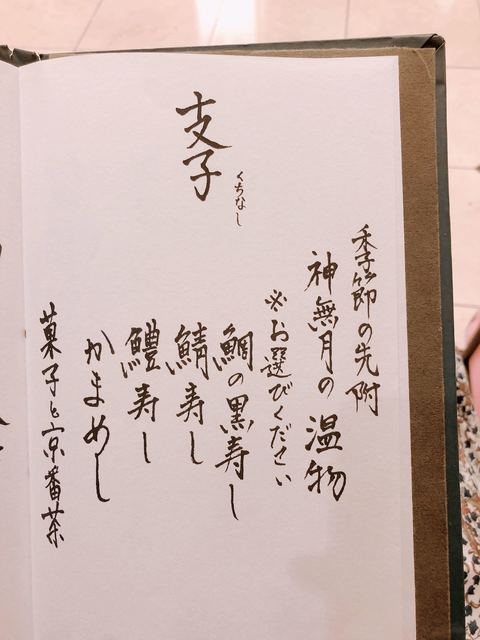 支子
くちなし
季節の先附
神無月の温物
※お選びください
鯛の黒寿し
鯖寿し
鱧寿し
かまめし
菓子と京番茶